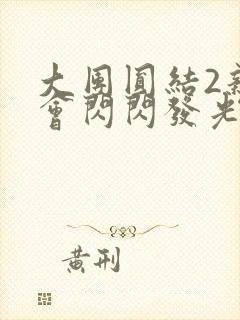 大團圓結2
會閃閃發光
黃刑